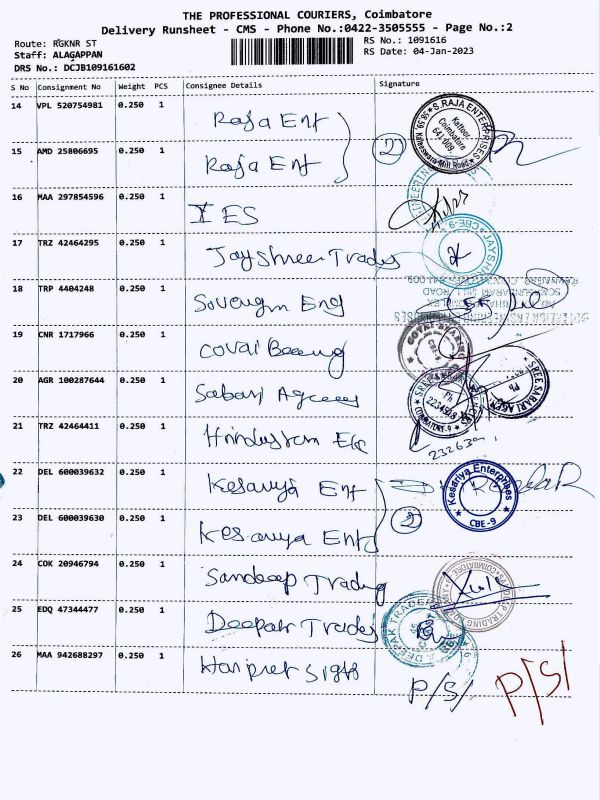 THE PROFESSIONAL COURIERS, Coimbatore
Delivery Runsheet - CMS - Phone No.:0422-3505555 - Page No.:2
Route: RGKNR ST
RS No.: 1091616
Staff: ALAGAPPAN
RS Date: 04-Jan-2023
DRS No.: DCJB109161602
S No Consignment No Weight PCS Consignee Details Signature
14 VPL 520754981 0.250 1 Raja Ent
S.RAJA ENTERPRISES
Kattoor Coimbatore 641 009.
Kaleeswara Mill Road
15 AMD 25806695 0.250 1 Raja Ent 2
16 MAA 297854596 0.250 1 IES
17 TRZ 42464295 0.250 1 Jayshree Trades
CBE-9
18 TRP 4404248 0.250 1 Sovengn Eng
19 CNR 1717966 0.250 1 Covai Beeing
20 AGR 100287644 0.250 1 Sabari Agcees
SREE SABARI
Ph
2234518
COIMBATORE-9
21 TRZ 42464411 0.250 1 Hindustan Ele
22 DEL 600039632 0.250 1 Kesariya Ent
Kesariya Enterprises
CBE-9
23 DEL 600039630 0.250 1 Kesariya Ent 2
24 COK 20946794 0.250 1 Sandeep Trading
25 EDQ 47344477 0.250 1 Deepak Trades
DEEPAK TRADERS
26 MAA 942688297 0.250 1 Hanpret Sigts
P/S/ P/S/